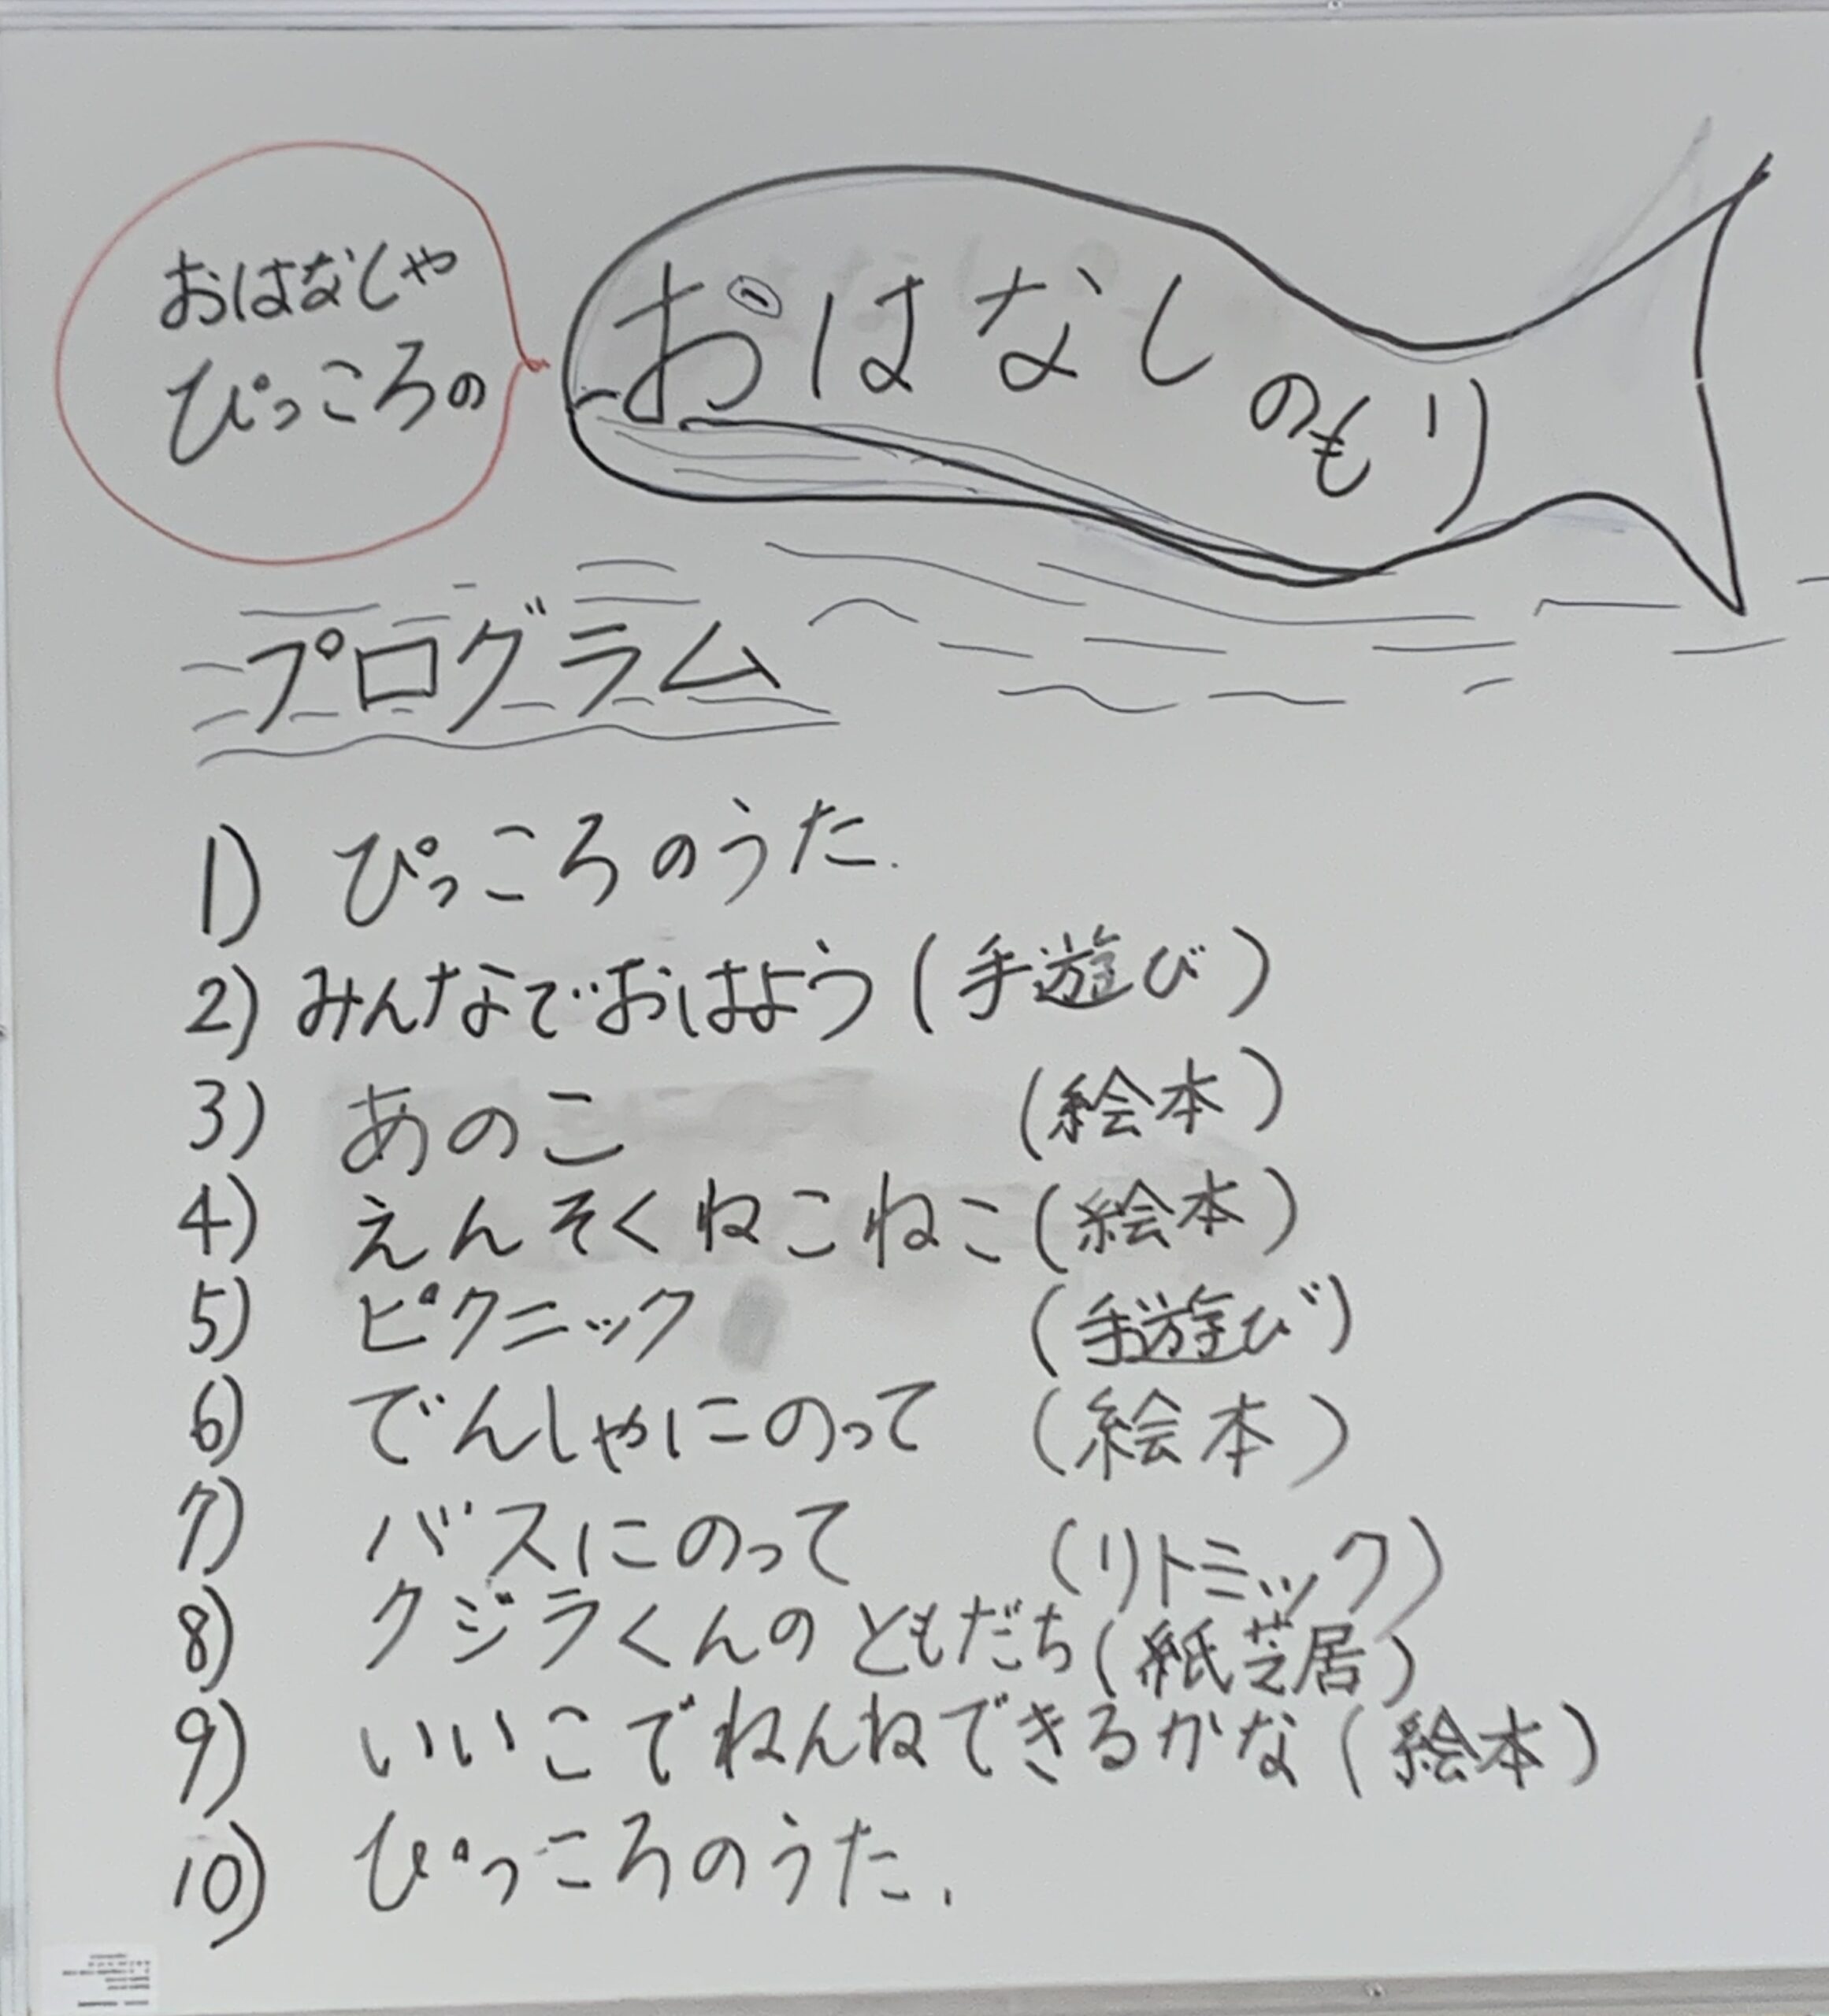 おはなしや
ぴっころの
おはなしのもり
プログラム
1) ぴっころのうた.
2) みんなでおはよう (手遊び)
3) あのこ (絵本)
4) えんそくねこねこ (絵本)
5) ピクニック (手遊び)
6) でんしゃにのって (絵本)
7) バスにのって (リトミック)
8) クジラくんのともだち (紙芝居)
9) いいこでねんねできるかな (絵本)
10) ぴっころのうた.